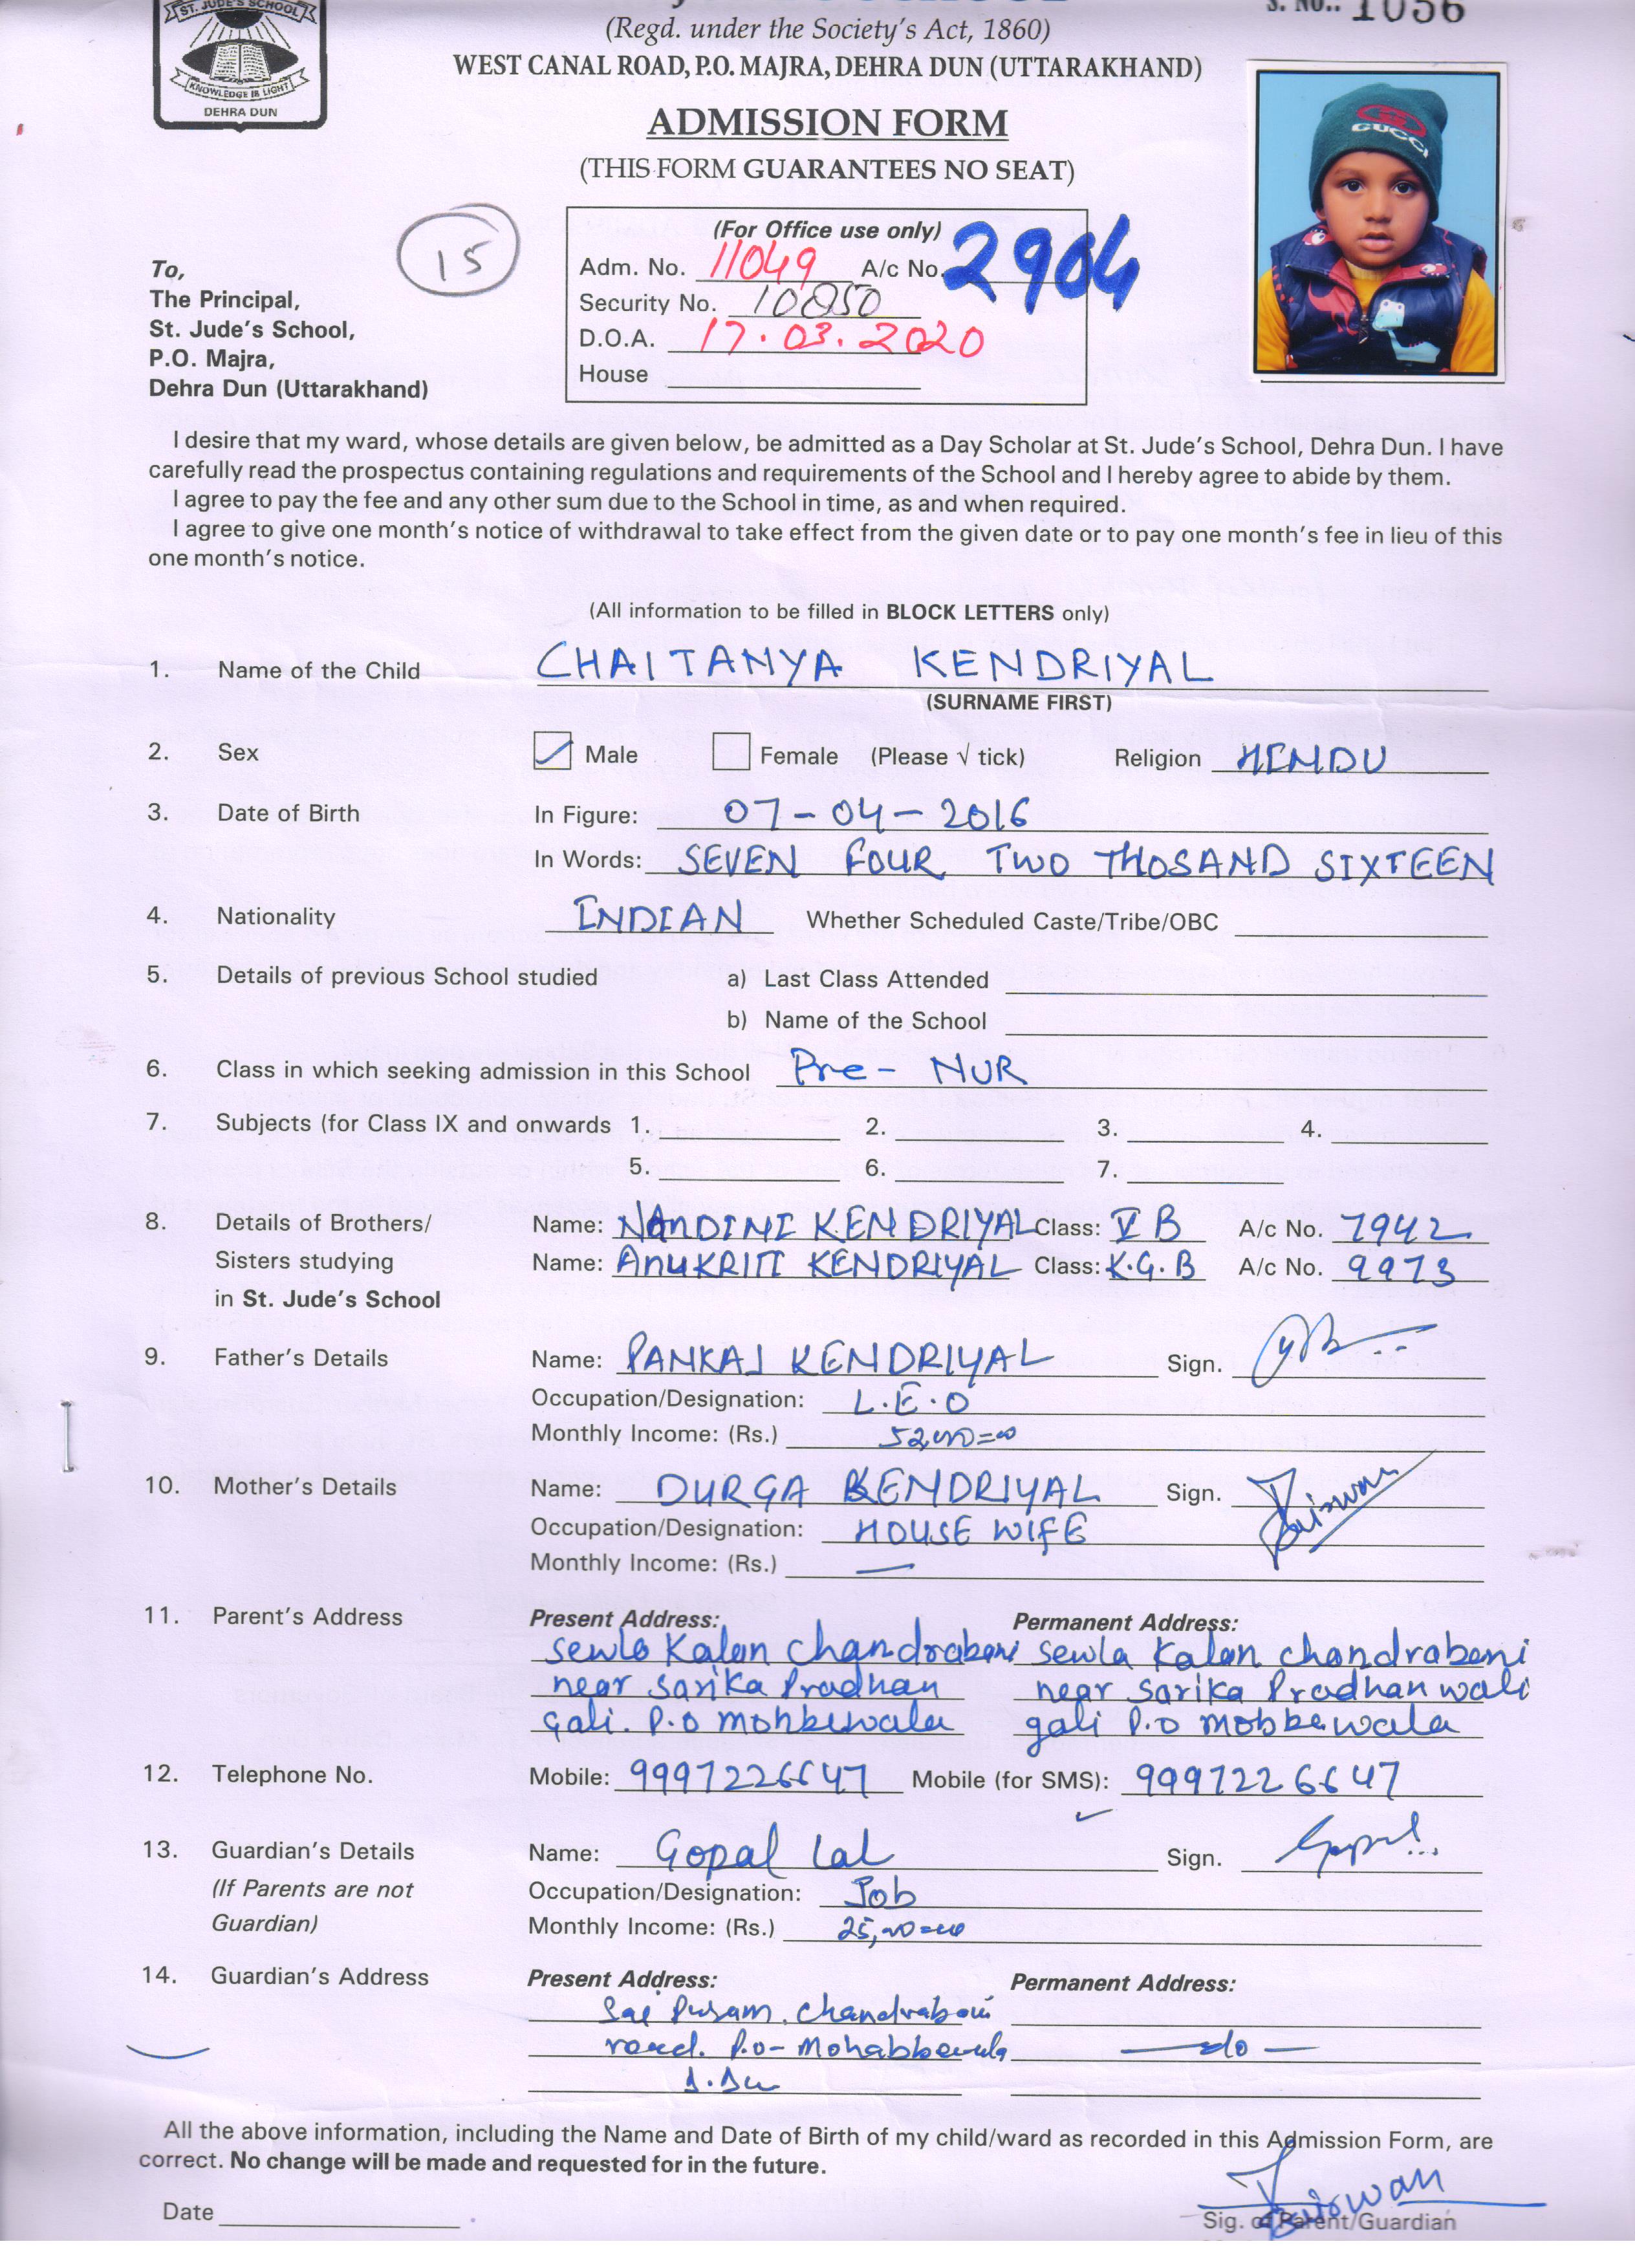 ST. JUDE'S SCHOOL
KNOWLEDGE IS LIGHT
DEHRA DUN
S. NO.: 1056
(Regd. under the Society's Act, 1860)
WEST CANAL ROAD, P.O. MAJRA, DEHRA DUN (UTTARAKHAND)
ADMISSION FORM
(THIS FORM GUARANTEES NO SEAT)
GUCCI
15
To,
The Principal,
St. Jude's School,
P.O. Majra,
Dehra Dun (Uttarakhand)
(For Office use only)
Adm. No. 11049 A/c No. 2904
Security No. 10850
D.O.A. 17.03.2020
House
I desire that my ward, whose details are given below, be admitted as a Day Scholar at St. Jude's School, Dehra Dun. I have
carefully read the prospectus containing regulations and requirements of the School and I hereby agree to abide by them.
I agree to pay the fee and any other sum due to the School in time, as and when required.
I agree to give one month's notice of withdrawal to take effect from the given date or to pay one month's fee in lieu of this
one month's notice.
(All information to be filled in BLOCK LETTERS only)
1. Name of the Child CHAITANYA KENDRIYAL
(SURNAME FIRST)
2. Sex Male Female (Please √ tick) Religion HINDU
3. Date of Birth In Figure: 07-04-2016
In Words: SEVEN FOUR TWO THOSAND SIXTEEN
4. Nationality INDIAN Whether Scheduled Caste/Tribe/OBC
5. Details of previous School studied a) Last Class Attended
b) Name of the School
6. Class in which seeking admission in this School Pre- NUR
7. Subjects (for Class IX and onwards 1. 2. 3. 4.
5. 6. 7.
8. Details of Brothers/ Name: NANDINI KENDRIYAL Class: V B A/c No. 7942
Sisters studying Name: ANUKRITI KENDRIYAL Class: K.G.B A/c No. 9973
in St. Jude's School
9. Father's Details Name: PANKAJ KENDRIYAL Sign.
Occupation/Designation: L.E.O
Monthly Income: (Rs.)
10. Mother's Details Name: DURGA KENDRIYAL Sign.
Occupation/Designation: HOUSE WIFE
Monthly Income: (Rs.) —
11. Parent's Address Present Address: Permanent Address:
Sewla Kalan Chandrabani Sewla Kalan chandrabani
near Sarika Pradhan near Sarika Pradhan wali
gali. P.O mohbewala gali P.O mobbewala
12. Telephone No. Mobile: 9997226647 Mobile (for SMS): 9997226647
13. Guardian's Details Name: Gopal Lal Sign.
(If Parents are not Occupation/Designation: Job
Guardian) Monthly Income: (Rs.)
14. Guardian's Address Present Address: Permanent Address:
Sai Chandrabani
road. P.O- Mohabbewala —do—
D.Dn
All the above information, including the Name and Date of Birth of my child/ward as recorded in this Admission Form, are
correct. No change will be made and requested for in the future.
Date
Sig. of Parent/Guardian